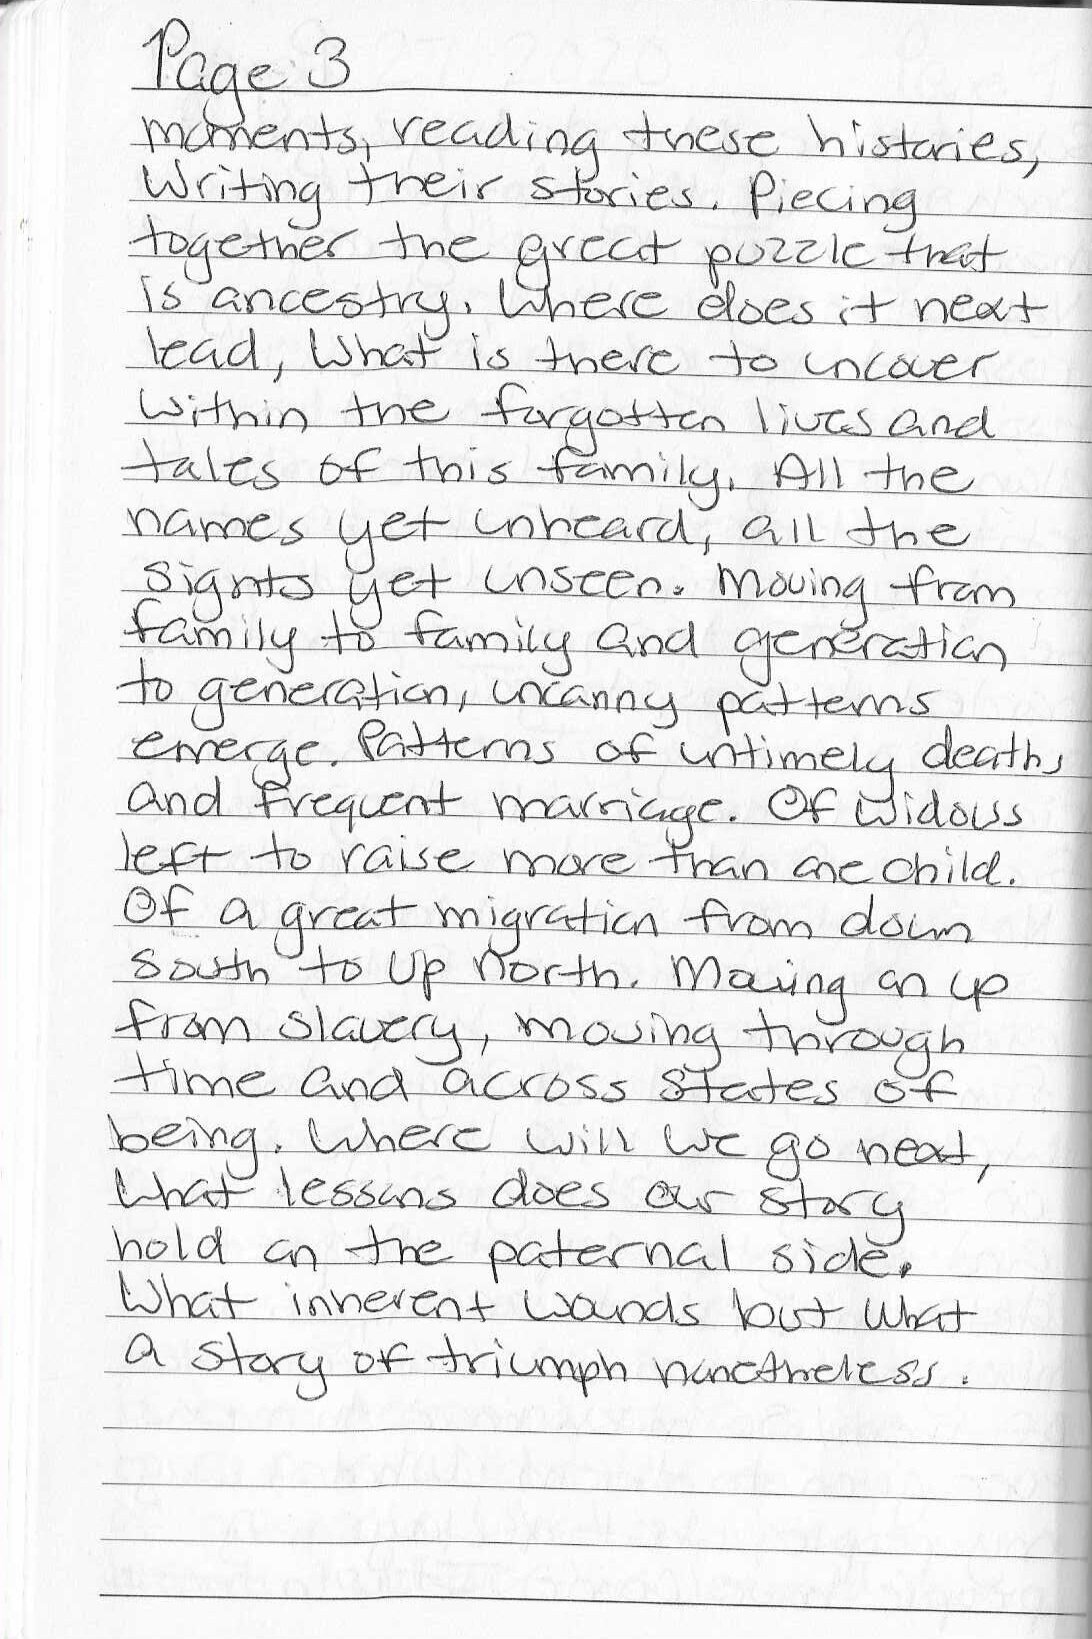 Page 3
moments, reading these histories,
Writing their stories. Piecing
together the great puzzle that
is ancestry. Where does it next
lead, What is there to uncover
within the forgotten lives and
tales of this family. All the
names yet unheard, all the
sights yet unseen. Moving from
family to family and generation
to generation, uncanny patterns
emerge. Patterns of untimely deaths
and frequent marriage. Of widows
left to raise more than one child.
Of a great migration from down
south to up north. Moving on up
from slavery, moving through
time and across states of
being. Where will we go next,
What lessons does our story
hold on the paternal side.
What inherent wounds but what
a story of triumph nonetheless.